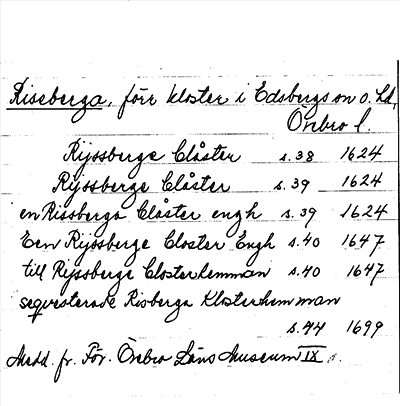 Riseberga, förr kloster i Edsbergs sn o. hd,
Örebro l.
Rijssberge Clåster s.38 1624
Rijssberge Clåster s.39 1624
en Rissberga Clåster engh s.39 1624
Een Rijssberge Closter Engh s.40 1647
till Rijssberge Closterhemman s.40 1647
seqvesterade Risberga Klosterhemman
s.44 1699
Medd. fr. För. Örebro Läns Museum IX